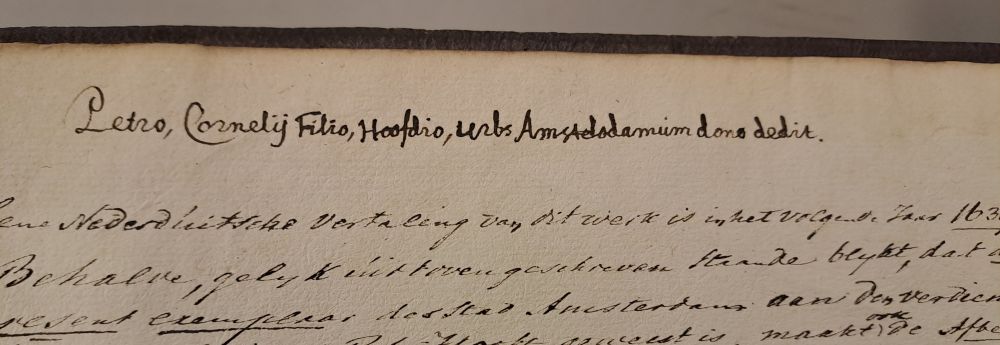 Petro, Cornelij Filio, Hoofdio, Urbs Amstelodamum dono dedit.
ene Nederduitsche Vertaling van dit werk is in het volgende Jaar 163
Behalve, gelyk uit boven geschreven staande blykt, dat
resent exemplaar der Stad Amsterdam aan den verdien
Hooft geweest is, maakt ook de Afbe